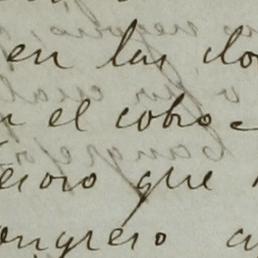 en las do
n el cobro e
esoro que
ongreso a